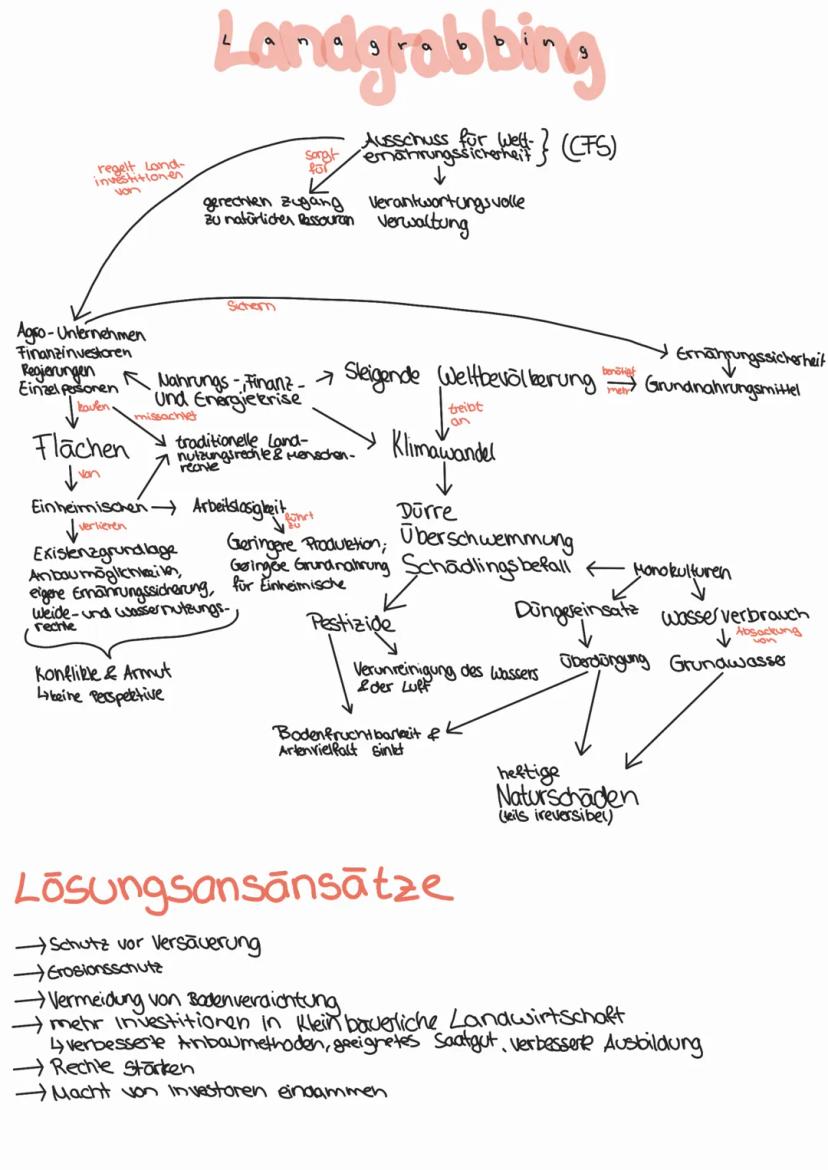 Landgrabbing
Landgrabbing
Ausschuss für Welt-
ernährungssicherheit } (CFS)
regelt Land-
investitionen
von
sorgt
für
gerechten zugang
zu natürlichen Ressourcen
Verantwortungsvolle
Verwaltung
sichern
Agro-Unternehmen
Finanzinvestoren
Regierungen
Einzelpersonen
Nahrungs-, Finanz-
und Energiekrise
Steigende Weltbevölkerung
benötigt
mehr
Ernährungssicherheit
Grundnahrungsmittel
kaufen
missachtet
treibt
an
Flächen
traditionelle Land-
nutzungsrechte & Menschen-
rechte
Klimawandel
von
Einheimischen
Arbeitslosigkeit
führt
zu
verlieren
Dürre
Überschwemmung
Schädlingsbefall
Monokulturen
Existenzgrundlage
Anbaumöglichkeiten,
eigene Ernährungssicherung,
Weide- und Wassernutzungs-
rechte
Geringere Produktion;
Geringere Grundnahrung
für Einheimische
Pestizide
Düngereinsatz
Wasserverbrauch
Absackung
von
Konflikte & Armut
↳ keine Perspektive
Verunreinigung des Wassers
& der Luft
Überdüngung
Grundwasser
Bodenfruchtbarkeit &
Artenvielfalt sinkt
heftige
Naturschäden
(teils ireversibel)
Lösungsansänsätze
→ Schutz vor Versäuerung
→ Erosionsschutz
→ Vermeidung von Bodenverdichtung
→ mehr Investitionen in Kleinbäuerliche Landwirtschaft
↳ verbesserte Anbaumethoden, geeignetes Saatgut, verbesserte Ausbildung
→ Rechte stärken
→ Macht von Investoren eindämmen